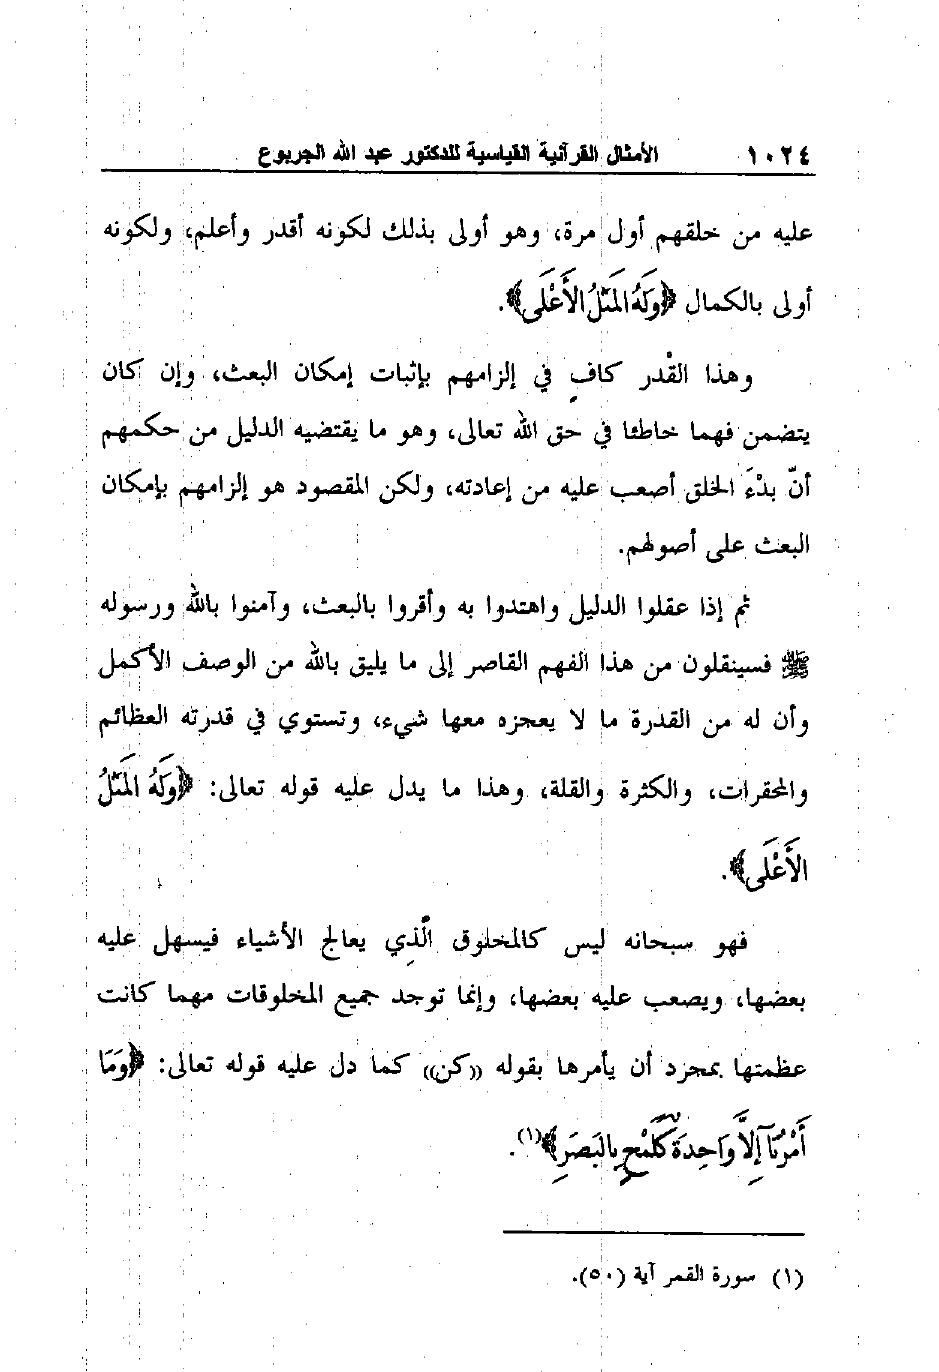 ١٠٢٤ الأمثال القرآنية القياسية للدكتور عبد الله الجربوع
عليه من خلقهم أول مرة، وهو أولى بذلك لكونه أقدر وأعلم، ولكونه
أولى بالكمال ﴿وَلَهُ المَثَلُ الأَعْلَى﴾.
وهذا القْدر كافٍ في إلزامهم بإثبات إمكان البعث، وإن كان
يتضمن فهما خاطئا في حق الله تعالى، وهو ما يقتضيه الدليل من حكمهم
أنّ بدْءَ الخلق أصعب عليه من إعادته، ولكن المقصود هو إلزامهم بإمكان
البعث على أصولهم.
ثم إذا عقلوا الدليل واهتدوا به وأقروا بالبعث، وآمنوا بالله ورسوله
ﷺ فسينقلون من هذا الفهم القاصر إلى ما يليق بالله من الوصف الأكمل
وأن له من القدرة ما لا يعجزه معها شيء، وتستوي في قدرته العظائم
والمحقرات، والكثرة والقلة، وهذا ما يدل عليه قوله تعالى: ﴿وَلَهُ المَثَلُ
الأَعْلَى﴾.
فهو سبحانه ليس كالمخلوق الَّذِي يعالج الأشياء فيسهل عليه
بعضها، ويصعب عليه بعضها، وإنما توجد جميع المخلوقات مهما كانت
عظمتها بمجرد أن يأمرها بقوله ((كن)) كما دل عليه قوله تعالى: ﴿وَمَا
أَمْرُنَآ إِلاَّ وَاحِدَةٌ كَلَمْحٍ بِالبَصَرِ﴾(١).
(١) سورة القمر آية (٥٠).